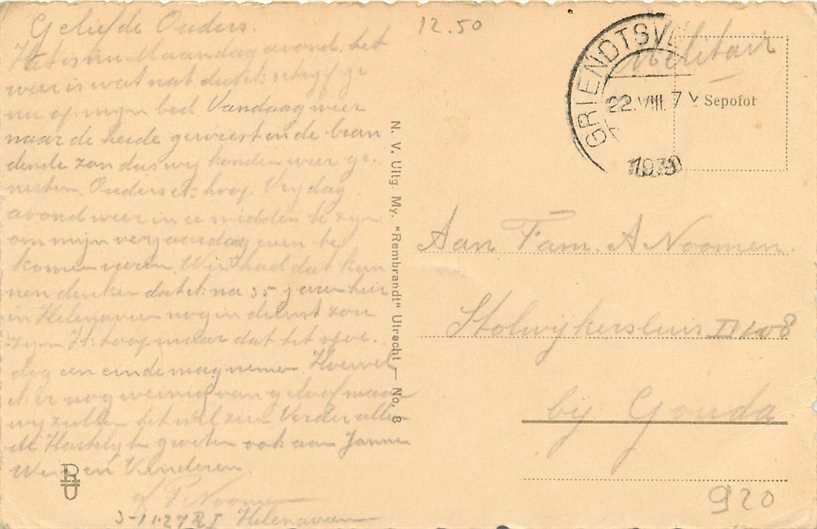 Geliefde Ouders.
Het is nu Maandag avond. het
weer is wat nat dus ik schrijf
nu op mijn bed Vandaag weer
naar de heide geweest in de bran
dende zon dus wij konden weer ge
nieten. Ouders ik hoop Vrijdag
avond weer in u midden te zijn
om mijn verjaardag even te
komen vieren. Wie had dat kun
nen denken dat ik na 35 jaren hier
in Helenaveen nog in dienst zou
zijn Ik hoop maar dat het spoe
dig een einde mag nemen. Hoewel
ik er nog weinig van geloof maar
wij zullen het wel zien Verder alle
de Hartelijke groeten ook aan Janna
Wim en Kinderen.
P. Noomen
3-11-27 R I Helenaveen
12.50
N. V. Uitg. My. "Rembrandt" Utrecht — No. 8
GRIENDTSVE
22 VIII. 7 V
1939
Militair
Sepofot
Aan Fam. A Noomen.
Stolwijkersluis II 108
bij Gouda
920